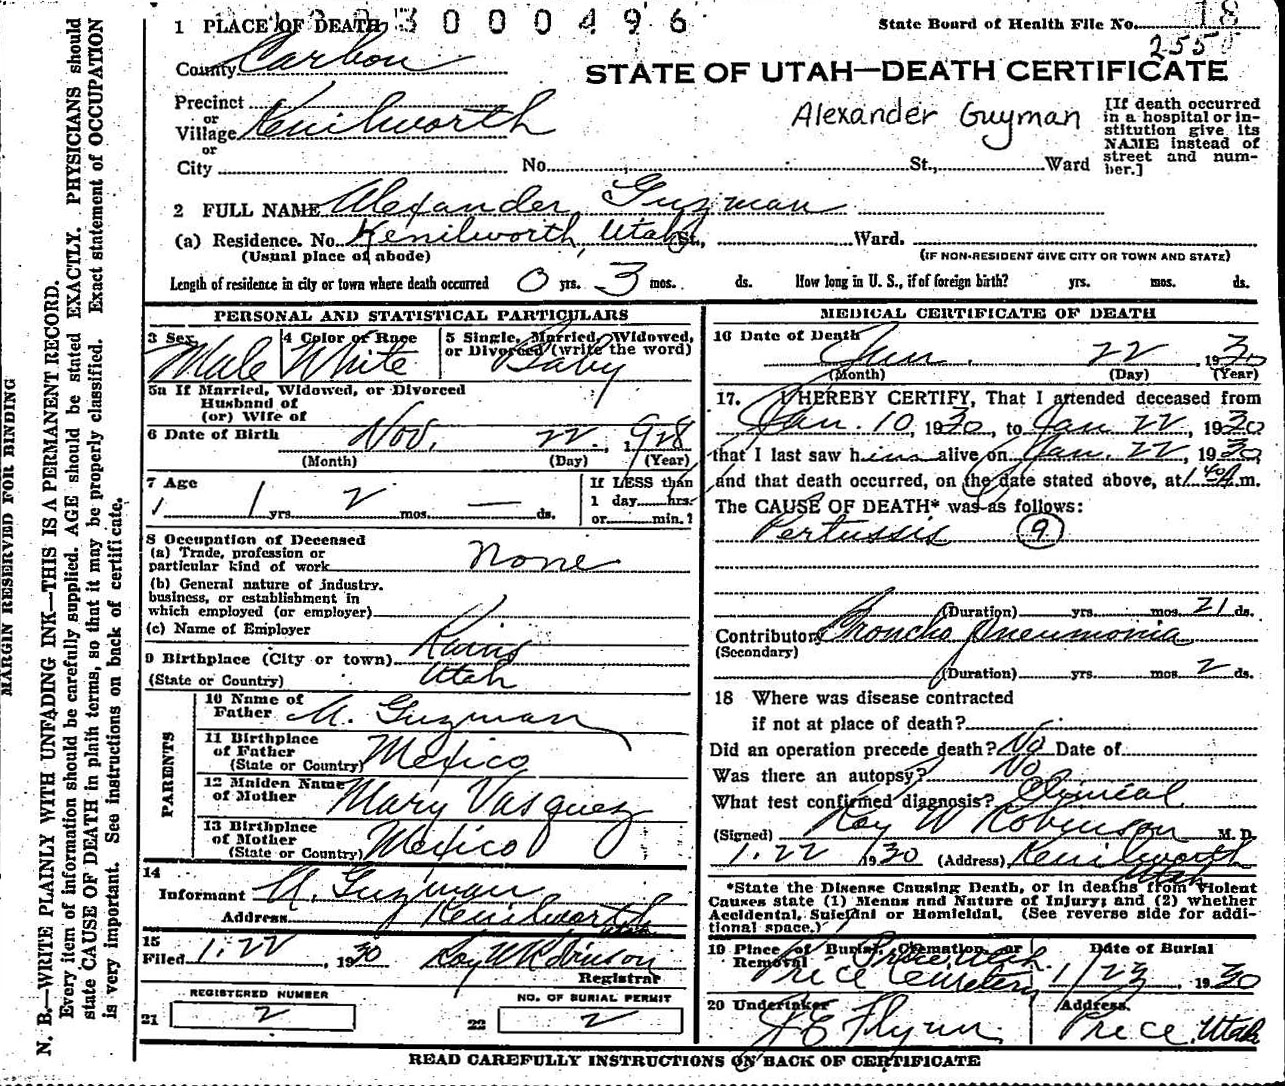 MARGIN RESERVED FOR BINDING
N. B.—WRITE PLAINLY WITH UNFADING INK—THIS IS A PERMANENT RECORD.
Every item of information should be carefully supplied. AGE should be stated EXACTLY. PHYSICIANS should
state CAUSE OF DEATH in plain terms, so that it may be properly classified. Exact statement of OCCUPATION
is very important. See instructions on back of certificate.
3000496
State Board of Health File No. 18
255
1 PLACE OF DEATH
County Carbon
STATE OF UTAH—DEATH CERTIFICATE
Precinct
or
Village Kenilworth
or
City No. St., Ward
Alexander Guyman
[If death occurred
in a hospital or in-
stitution give its
NAME instead of
street and num-
ber.]
2 FULL NAME Alexander Guzman
(a) Residence. No. Kenilworth, Utah St., Ward.
(Usual place of abode)
(IF NON-RESIDENT GIVE CITY OR TOWN AND STATE)
Length of residence in city or town where death occurred 0 yrs. 3 mos. ds. How long in U. S., if of foreign birth? yrs. mos. ds.
PERSONAL AND STATISTICAL PARTICULARS
3 Sex Male
4 Color or Race White
5 Single, Married, Widowed,
or Divorced (write the word)
Baby
5a If Married, Widowed, or Divorced
Husband of
(or) Wife of
6 Date of Birth Nov. 22. 1928
(Month) (Day) (Year)
7 Age
1 yrs. 2 mos. — ds.
If LESS than
1 day hrs.
or min.?
8 Occupation of Deceased
(a) Trade, profession or
particular kind of work None
(b) General nature of industry.
business, or establishment in
which employed (or employer)
(c) Name of Employer
9 Birthplace (City or town) Rains
(State or Country) Utah
PARENTS
10 Name of
Father M. Guzman
11 Birthplace
of Father
(State or Country) Mexico
12 Maiden Name
of Mother Mary Vasquez
13 Birthplace
of Mother
(State or Country) Mexico
14
Informant M. Guzman
Address Kenilworth Utah
15
Filed 1-22, 1930 Roy W Robinson
Registrar
REGISTERED NUMBER
21 2
NO. OF BURIAL PERMIT
22 2
MEDICAL CERTIFICATE OF DEATH
16 Date of Death
Jan. 22, 1930
(Month) (Day) (Year)
17. I HEREBY CERTIFY, That I attended deceased from
Jan. 10, 1930, to Jan 22, 1930
that I last saw him alive on Jan. 22, 1930,
and that death occurred, on the date stated above, at 1 40 A. m.
The CAUSE OF DEATH* was as follows:
Pertussis 9
(Duration) yrs. mos. 21 ds.
Contributory Broncho Pneumonia
(Secondary)
(Duration) yrs. mos. 2 ds.
18 Where was disease contracted
if not at place of death?
Did an operation precede death? No Date of
Was there an autopsy? No
What test confirmed diagnosis? Clinical
(Signed) Roy W Robinson M. D.
1-22 1930 (Address) Kenilworth
Utah
*State the Disease Causing Death, or in deaths from Violent
Causes state (1) Means and Nature of Injury; and (2) whether
Accidental, Suicidal or Homicidal. (See reverse side for addi-
tional space.)
19 Place of Burial, Cremation, or
Removal Price Utah
Price Cemetery
Date of Burial
1/23, 1930
20 Undertaker
J E Flynn
Address
Price Utah
READ CAREFULLY INSTRUCTIONS ON BACK OF CERTIFICATE